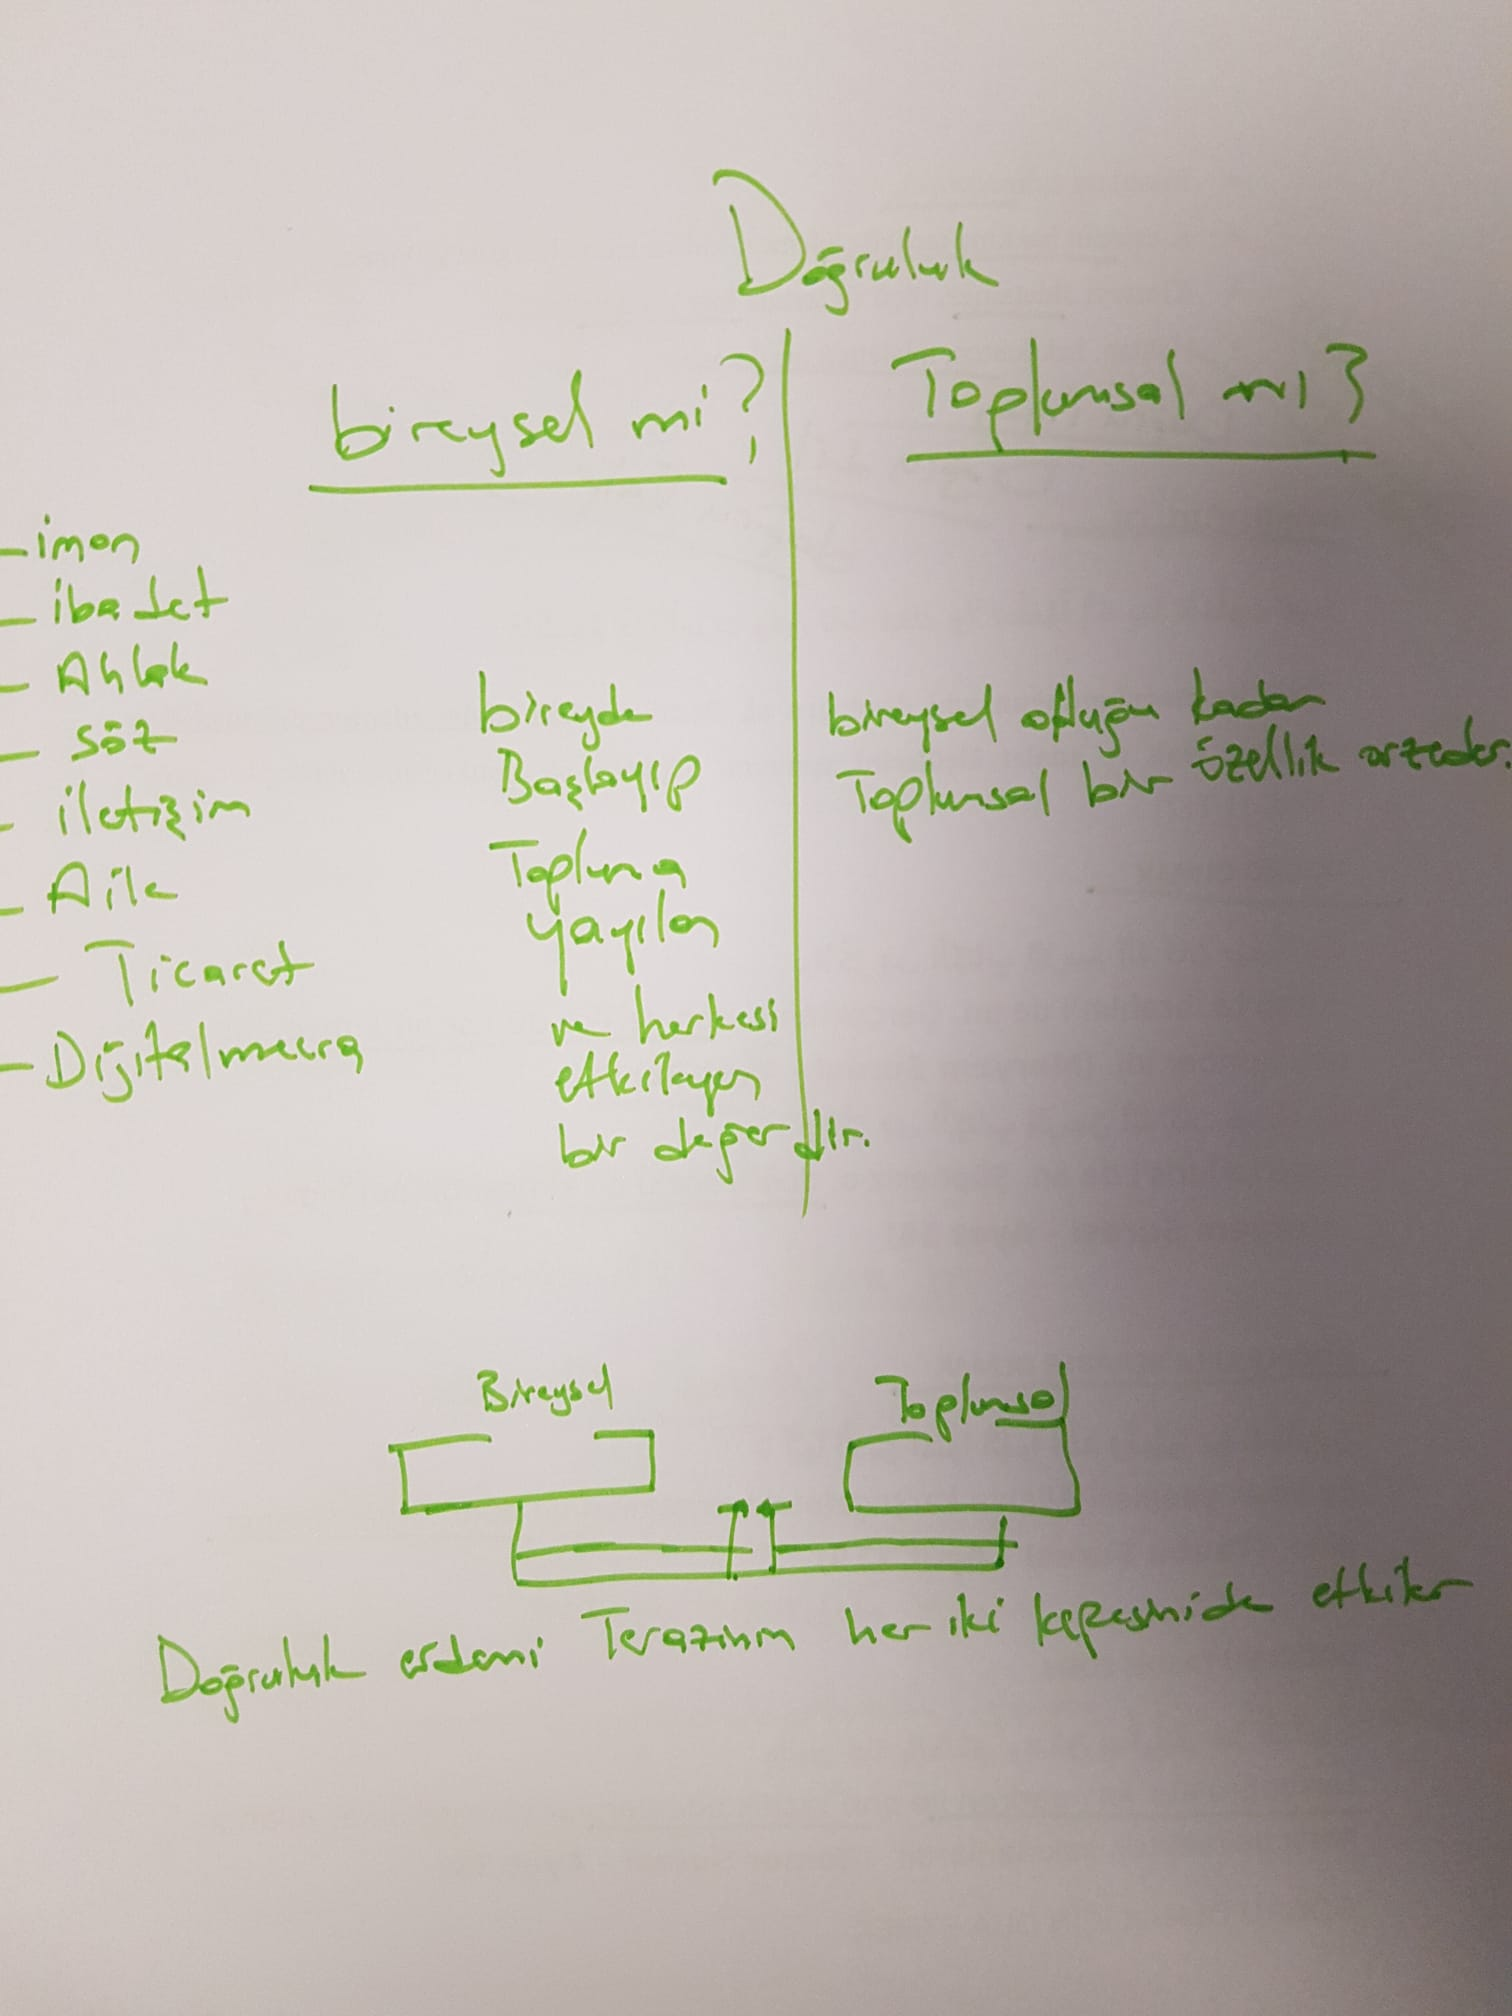 Doğruluk
bireysel mi?
Toplumsal mı?
- iman
- ibadet
- Ahlak
- söz
- iletişim
- Aile
- Ticaret
- Dijital mecra
bireyde
Başlayıp
Topluma
yayılan
ve herkesi
etkileyen
bir değerdir.
bireysel olduğu kadar
Toplumsal bir özellik arzeder.
Bireysel
Toplumsal
Doğruluk erdemi Terazinin her iki kefesinide etkiler